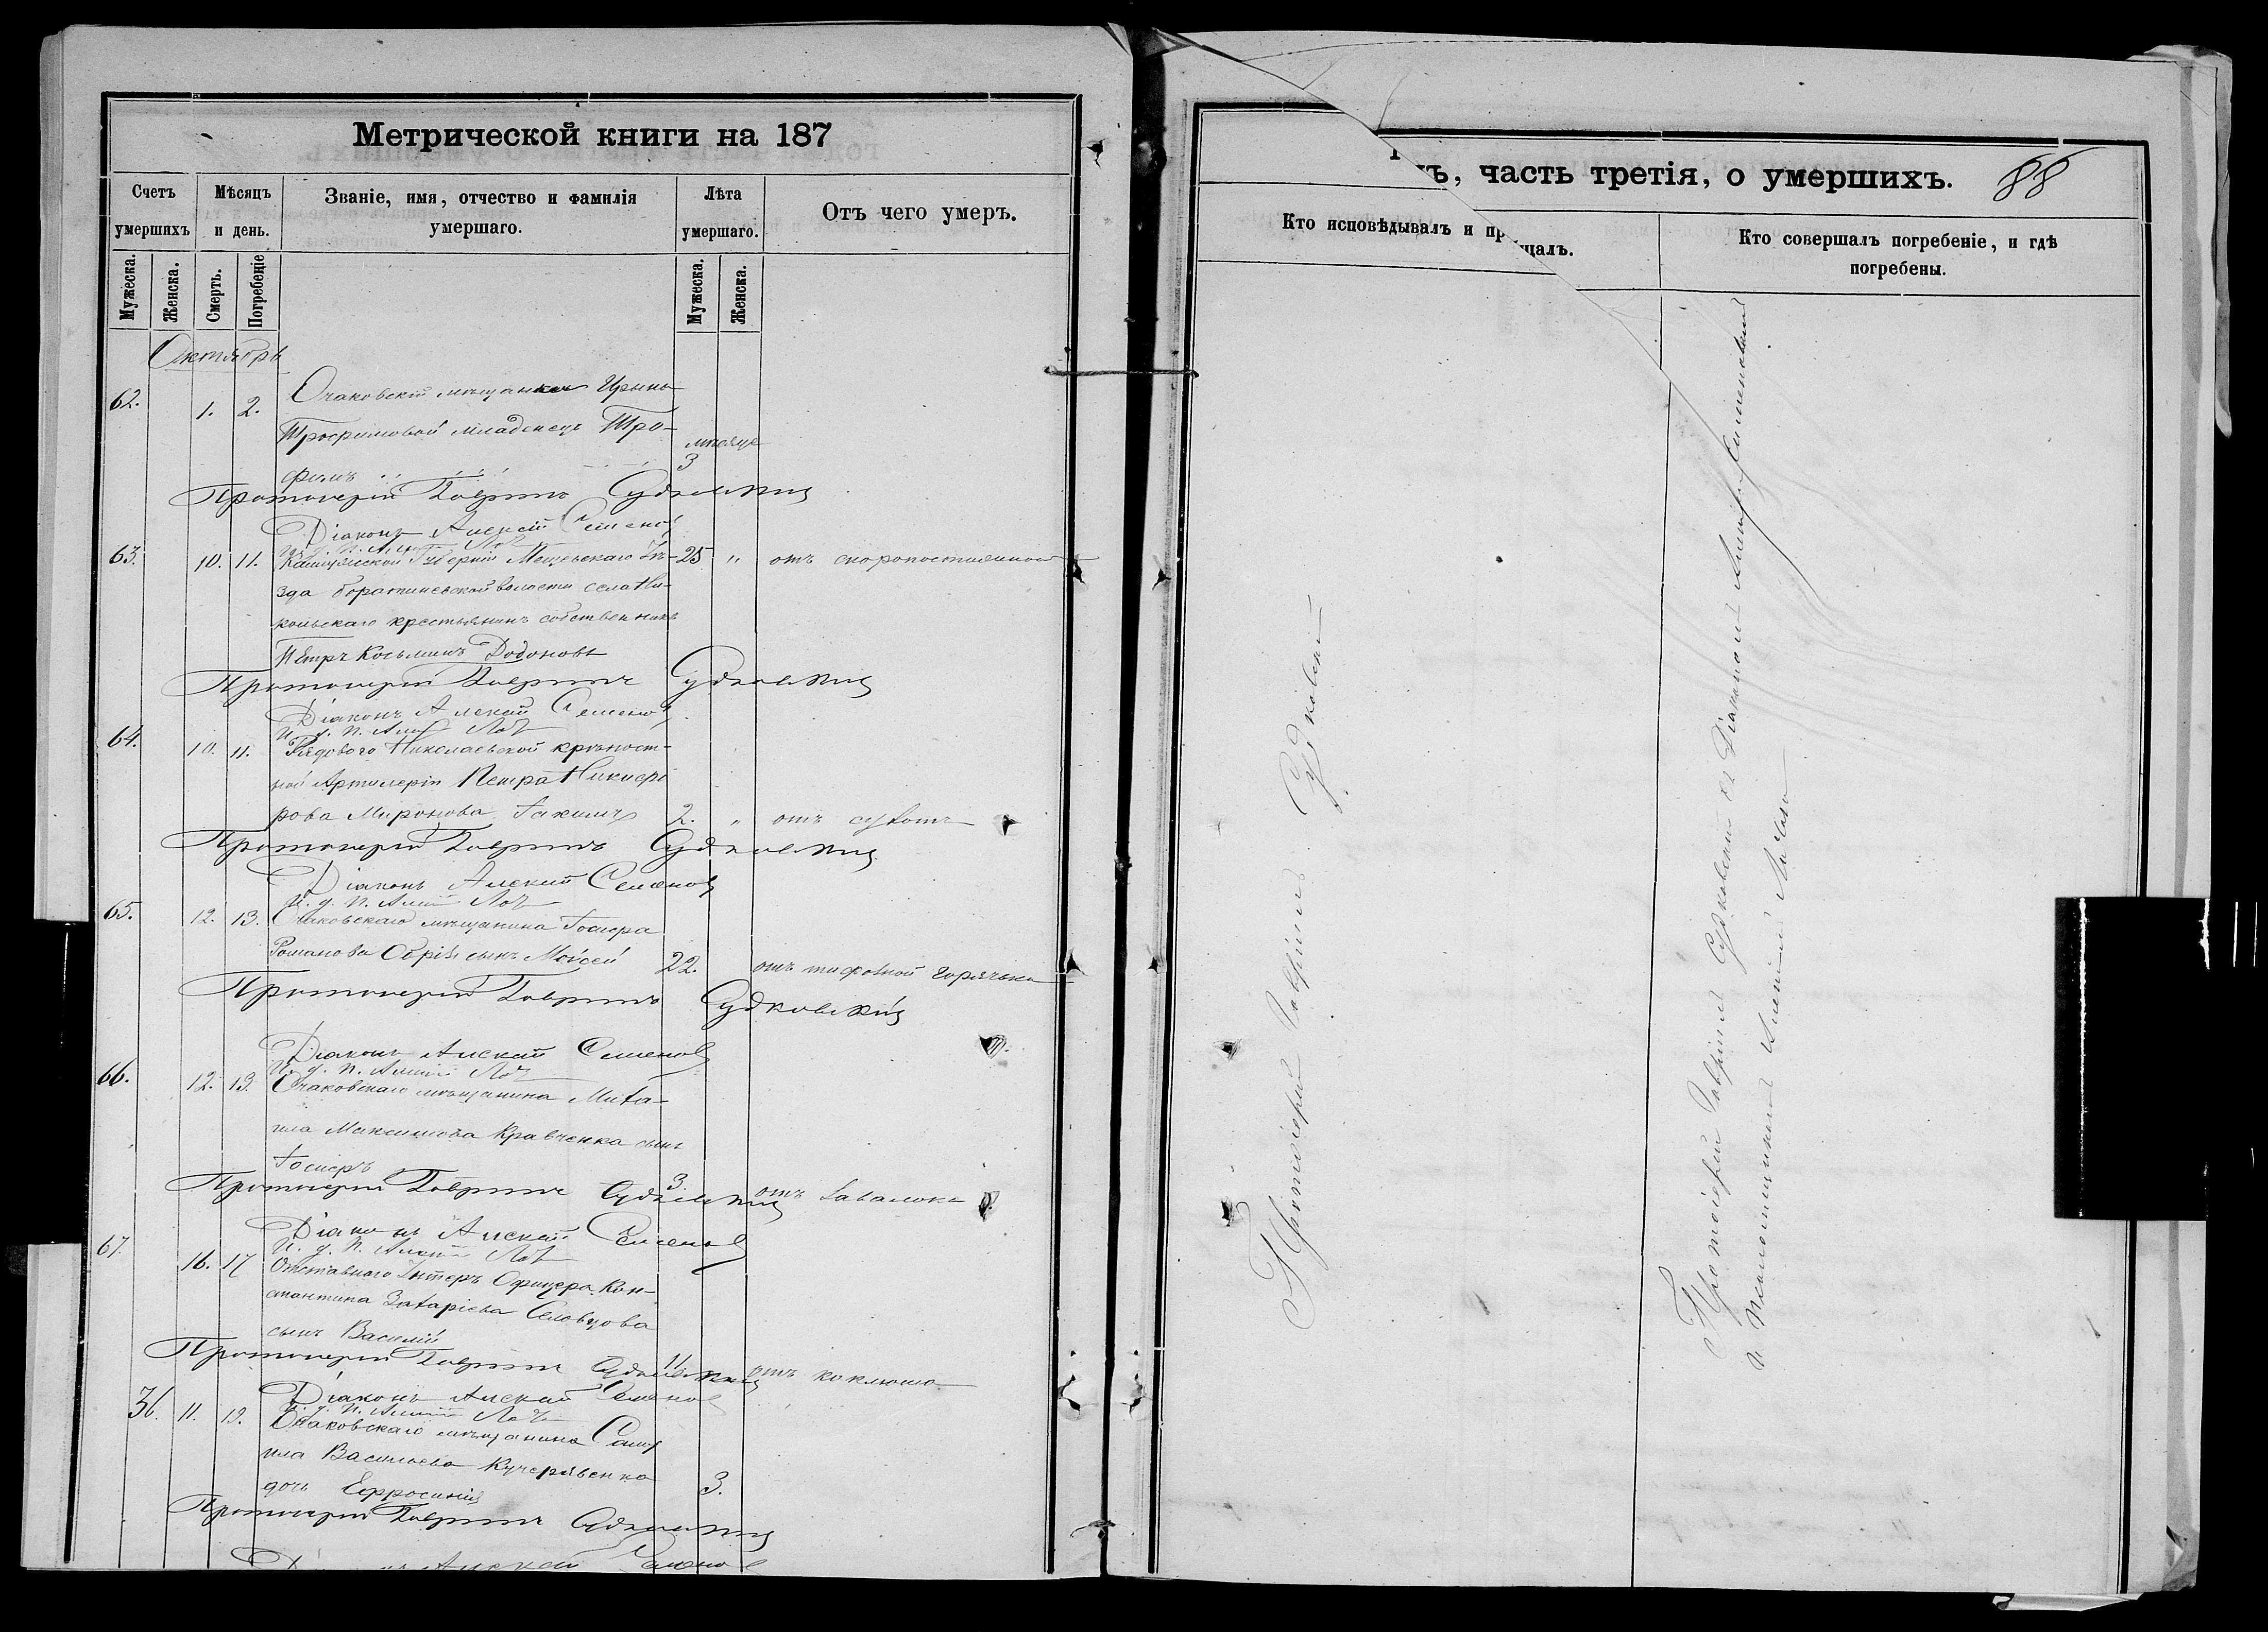 Метрической книги на 187
Счетъ умершихъ
Мѣсяцъ и день.
Званіе, имя, отчество и фамилія умершаго.
Лѣта умершаго.
Отъ чего умеръ.
Мужеска.
Женска.
Смерть.
Погребеніе
Мужеска.
Женска.
Октябрь
62. 1. 2. Очаковской мѣщанки Ирины
Трофимовой младенецъ Тро-
мѣсяца
фимъ 3
Протоіерей Гавріилъ Судковскій
Діаконъ Алексій Семенов
63. 10. 11. Калужской Губерніи Мещовскаго Уѣ- 25 " отъ скоропостижной
зда волости села Ни-
кольскаго крестьянинъ собственникъ
Петръ Косьминъ Додоновъ
Протоіерей Гавріилъ Судковскій
Діаконъ Алексій Семенов
И. д. П.
64. 10. 11. Рядового Николаевской крѣпост-
ной Артилеріи Петра Никифо
рова Миронова Іакимъ 2. " отъ сухотъ
Протоіерей Гавріилъ Судковскій
Діаконъ Алексій Семенов
И. д. П.
65. 12. 13. Очаковскаго мѣщанина Іосифа
Романова сынъ Моисей 22. отъ тифозной горячки
Протоіерей Гавріилъ Судковскій
Діаконъ Алексій Семенов
И. д. П.
66. 12. 13. Очаковскаго мѣщанина Миха-
ила Максимова Кравченка сынъ
Іосифъ 3. отъ завалока
Протоіерей Гавріилъ Судковскій
Діаконъ Алексій Семенов
И. д. П.
67. 16. 17 Отставного Унтеръ Офицера Кон-
стантина Захаріева
сынъ Василій 11 отъ коклюша
Протоіерей Гавріилъ Судковскій
Діаконъ Алексій Семенов
И. д. П.
36. 11. 12. Очаковскаго мѣщанина Саму
ила Васильева Кучерявенко
дочь Ефросинія 3.
Протоіерей Гавріилъ Судковскій
Діаконъ Алексій Семенов
ъ, часть третія, о умершихъ.
88
Кто исповѣдывалъ и пр
щалъ.
Кто совершалъ погребеніе, и гдѣ
погребены.
Протоіерей Гавріилъ Судковскій
Протоіерей Гавріилъ Судковскій съ Діакономъ
и Псаломщикомъ Алексіемъ